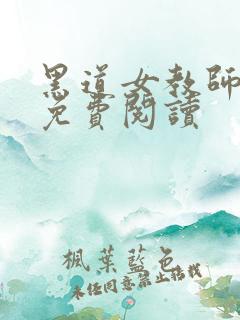 黑道女教師
免費閱讀
楓葉藍色
未经同意禁止转载